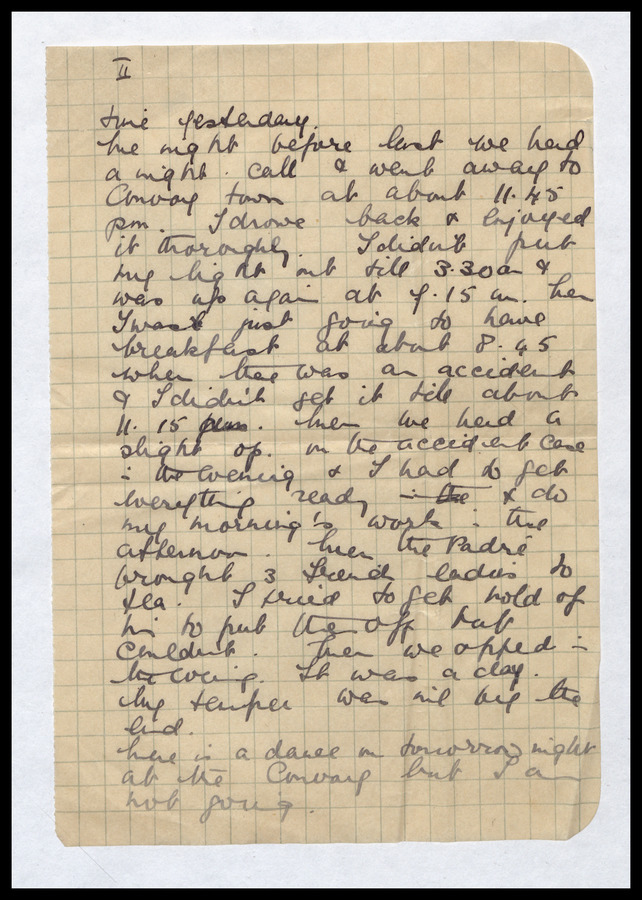 II
time yesterday.
The night before last we had
a night call & went away to
Convoy town at about 11.45
pm. I drove back & enjoyed
it thoroughly. I didn't put
my light out till 3.30am &
was up again at 7.15 am. Then
I was just going to have
breakfast at about 8.45
when there was an accident
& I didn't get it till about
11.15. Then we had a
slight op. on the accident case
in the evening & I had to get
everything ready in the & do
my morning's work in the
afternoon. Then the Padré
brought 3 French ladies to
tea. I tried to get hold of
him to put them off but
couldn't. Then we opped in
the evening. It was a day.
My temper was nil by the
end.
There is a dance on tomorrow night
at the Convoy but I am
not going.